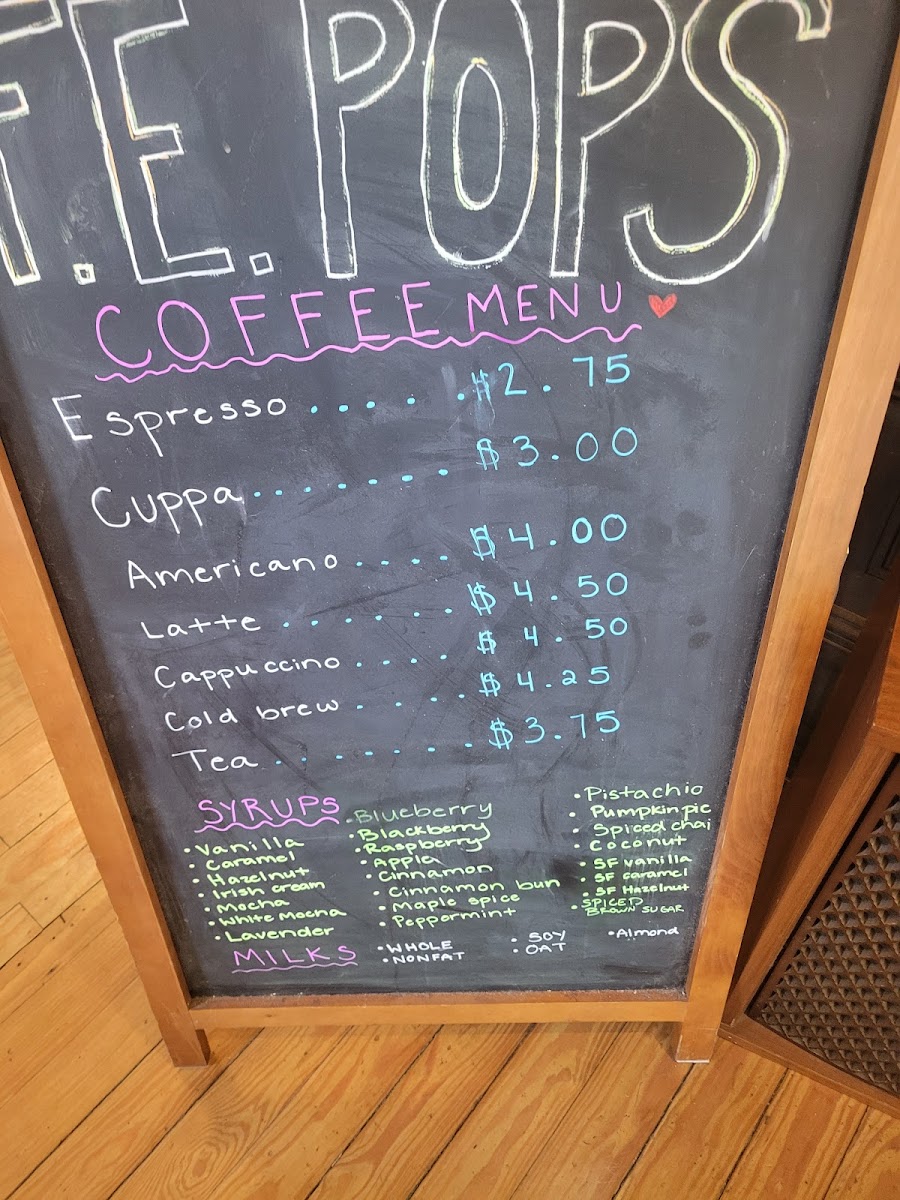 F.E. POPS
COFFEE MENU
Espresso ..... $2.75
Cuppa ....... $3.00
Americano .... $4.00
Latte ....... $4.50
Cappuccino .... $4.50
Cold brew ..... $4.25
Tea ........ $3.75
SYRUPS
• Vanilla
• Caramel
• Hazelnut
• Irish cream
• Mocha
• White Mocha
• Lavender
• Blueberry
• Blackberry
• Raspberry
• Apple
• Cinnamon
• Cinnamon bun
• Maple spice
• Peppermint
• Pistachio
• Pumpkin pie
• Spiced chai
• Coconut
• SF vanilla
• SF caramel
• SF Hazelnut
• SPICED
BROWN SUGAR
MILKS
• WHOLE
• NONFAT
• SOY
• OAT
• Almond